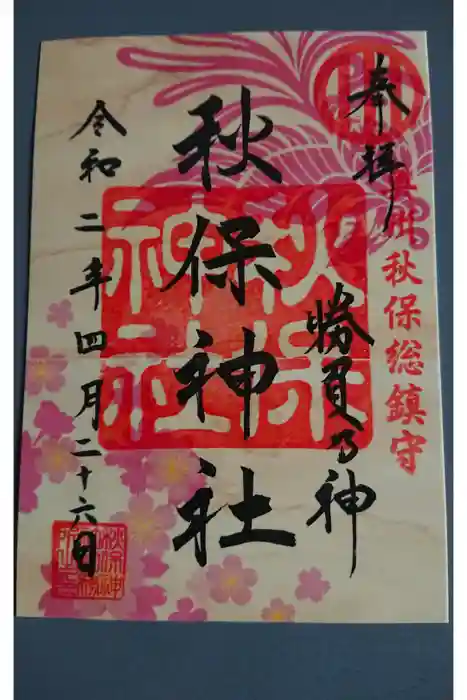 奉拝
出羽秋保総鎮守
勝負の神
秋保神社
秋保神社
令和二年四月二十六日